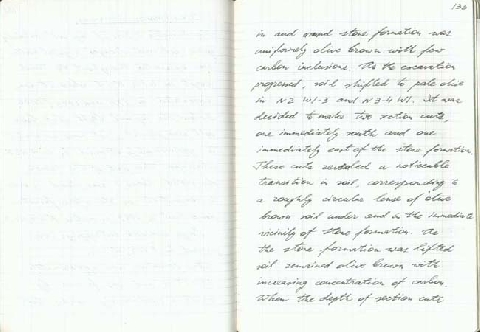 130
in and around stone formation was
uniformly olive brown with few
carbon inclusions. As the excavation
progressed, soil shifted to pale olive
in N2 W1-3 and N3-4 W1. It was
decided to make two section cuts,
one immediately north and one
immediately east of the stone formation.
These cuts revealed a noticeable
transition in soil, corresponding to
a roughly circular lense of olive
brown soil under and in the immediate
vicinity of stone formation. As
the stone formation was lifted
soil remained olive brown with
increasing concentration of carbon
When the depth of section cuts